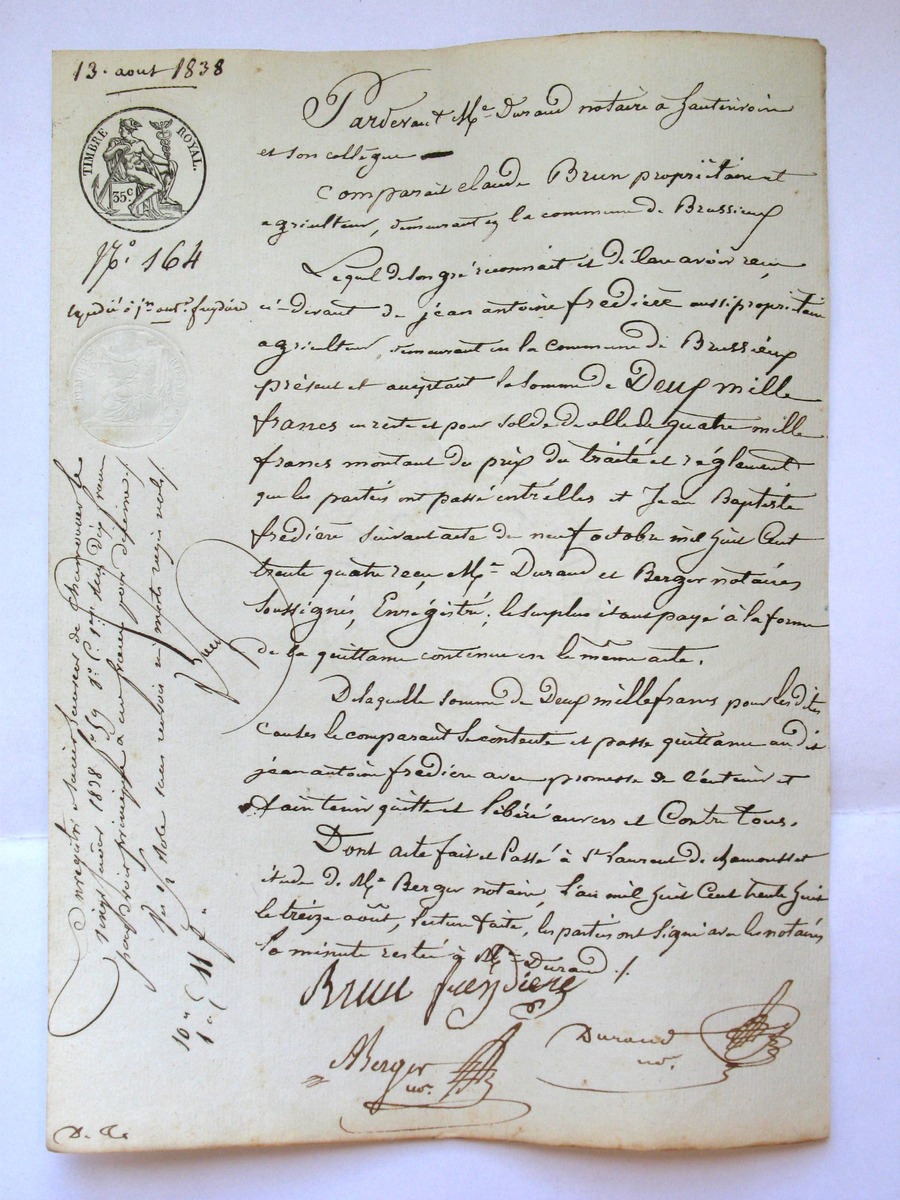 13. aout 1838
TIMBRE ROYAL.
35.c
N.o 164
Pardevant Me. Durand notaire à hauterivoire
et son collègue
Comparait Claude Brun propriétaire et
agriculteur, demeurant en la commune de Brussieux
Lequel de son gré reconnait et déclare avoir reçu
ci-devant de jean antoine fredière aussi propriétaire
agriculteur, demeurant en la commune de Brussieux
présent et acceptant la somme de Deux mille
francs en reste et pour solde de celle de quatre mille
francs montant du prix du traité et réglement
que les parties ont passé entr'elles et Jean Baptiste
fredière suivant acte du neuf octobre mil huit Cent
trente quatre reçu Me. Durand et Berger notaires
soussignés, Enregistré; le surplus étant payé à la forme
de la quittance contenue en le même acte.
De laquelle somme de Deux mille francs pour les dites
causes le comparant se contente et passe quittance au dit
jean antoine fredière avec promesse de l'entenir et
faire tenir quitte et libéré envers et Contre tous.
Dont acte fait et Passé à St. Laurent de chamousset
étude de Me. Berger notaire, l'an mil huit Cent trente huit
le treize août, lecture faite, les parties ont signé avec les notaires
la minute restée à Me. Durand /.
Brun freydiere
Berger
no.
Durand
no.
Enregistré à Saint Laurent de chamousset le
vingt août 1838 fo. 69